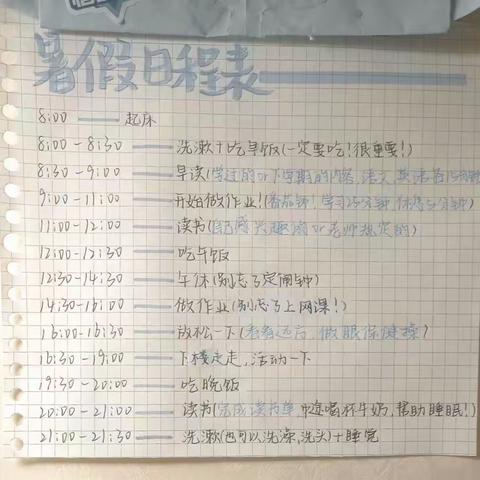 暑假日程表
8:00 —— 起床
8:00-8:30 —— 洗漱+吃早饭(一定要吃!很重要!)
8:30-9:00 —— 早读(学过的or下学期的内容,语文,英语各15分钟)
9:00-11:00 —— 开始做作业!(番茄钟!学习25分钟,休息5分钟)
11:00-12:00 —— 读书(自己感兴趣的or老师规定的)
12:00-12:30 —— 吃午饭
12:30-14:30 —— 午休(别忘了定闹钟)
14:30-16:00 —— 做作业(别忘了上网课!)
16:00-16:30 —— 放松一下(看看远方,做眼保健操)
16:30-19:00 —— 下楼走走,活动一下
19:30-20:00 —— 吃晚饭
20:00-21:00 —— 读书(完成读书单,中途喝杯牛奶,帮助睡眠!)
21:00-21:30 —— 洗漱(也可以洗澡,洗头)+睡觉